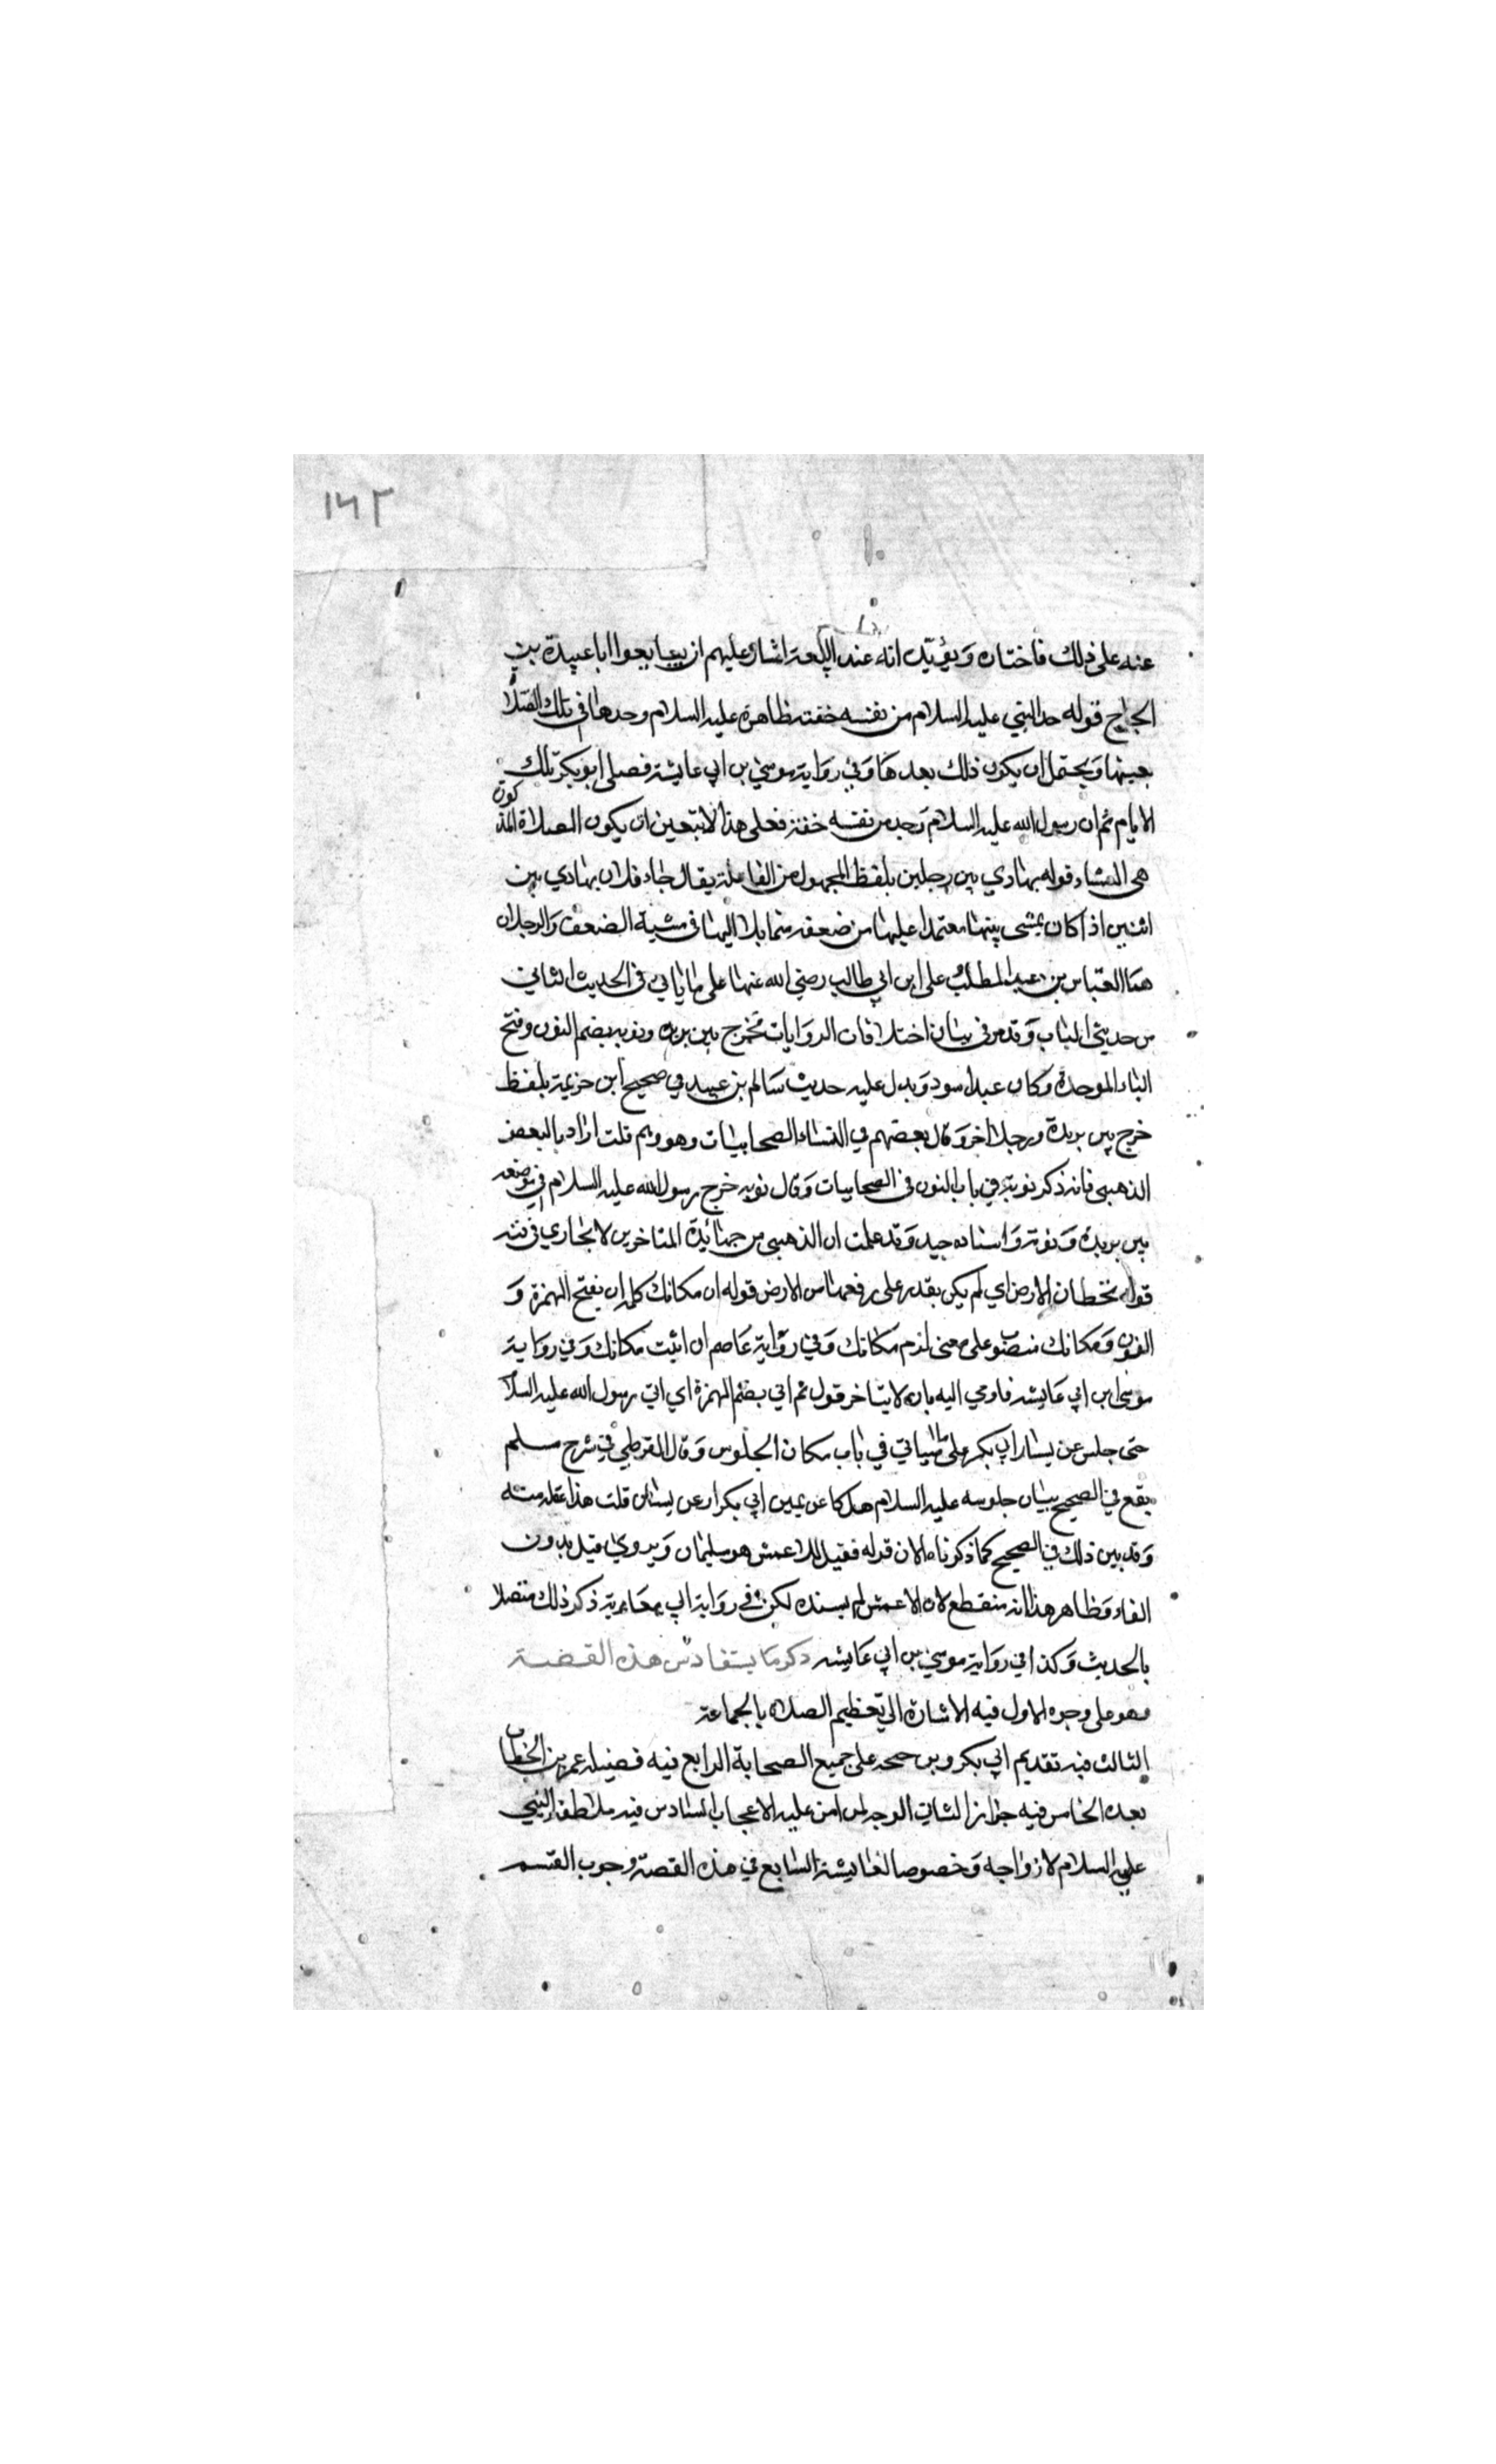 ١٤٢
عنه على ذلك فاختاره ويؤيده انه عند البيعة اشار عليهم ان يبايعوا ابا عبيدة بن
الجراح قوله فوجد النبي عليه السلام من نفسه خفة ظاهره عليه السلام وجدها في تلك الصلاة
بعينها ويحتمل ان يكون ذلك بعدها وفي رواية موسى بن ابي عايشة فصلى ابو بكر تلك
الايام ثم ان رسول الله عليه السلام وجد من نفسه خفة فعلى هذا لا يتعين ان يكون الصلاة المذكورة
هي العشاء قوله يهادي بين رجلين بلفظ المجهول من المفاعلة يقال جاء فلان يهادي بين
اثنين اذا كان يمشي بينهما معتمدا عليهما من ضعفه متمايلا اليهما في مشيه الضعف والرجلان
هما العباس بن عبد المطلب وعلى ابن ابي طالب رضي الله عنهما على ما ياتي في الحديث الثاني
من حديثي الباب وقد مر في بيان اختلافات الروايات فخرج بين بريرة ونوبه بضم النون وفتح
الباء الموحدة وكان عبدا اسود ويدل عليه حديث سالم بن عبيد في صحيح ابن خزيمة بلفظ
خرج بين بريرة ورجل اخر وقال بعضهم في النساء الصحابيات وهو وهم قلت اراد بالبعض
الذهبي فانه ذكر نوبة في باب النون في الصحابيات وقال نوبه خرج رسول الله عليه السلام في مرضه
بين بريرة ونوبة واسناده جيد وقد علمت ان الذهبي من جهابذة المتاخرين لا يجاري في فنه
قوله تخطان الارض اي لم يكن يقدر على رفعهما من الارض قوله ان مكانك كلمة ان بفتح الهمزة و
النون ومكانك منصوب على معنى الزم مكانك وفي رواية عاصم ان اثبت مكانك وفي رواية
موسى ابن ابي عايشه فاومي اليه بان لا يتاخر قوله ثم اتي بضم الهمزة اي اتي رسول الله عليه السلام
حتى جلس عن يسار ابي بكر على ما سياتي في باب مكان الجلوس وقال القرطبي في شرح مسلم
يقع في الصحيح بيان جلوسه عليه السلام هل كان عن يمين ابي بكر او عن يساره قلت هذا غفلة منه
وقد بين ذلك في الصحيح كما ذكرناه الان قوله فقيل للاعمش هو سليمان ويروى قيل بدون
الفاء وظاهر هذا انه منقطع لان الاعمش لم يسنده لكن في رواية ابي معاوية ذكر ذلك متصلا
بالحديث وكذا في رواية موسى بن ابي عايشه ذكر ما يستفاد من هذه القضية
وهو على وجوه الاول فيه الاشارة الى تعظيم الصلاة بالجماعة
الثالث فيه تقديم ابي بكر وترجيحه على جميع الصحابة الرابع فيه فضيلة عمر بن الخطاب
بعده الخامس فيه جواز الثناء في الوجه لمن امن عليه الاعجاب السادس فيه ملاطفة النبي
عليه السلام لازواجه وخصوصا لعايشة السابع في هذه القصة وجوب القسم